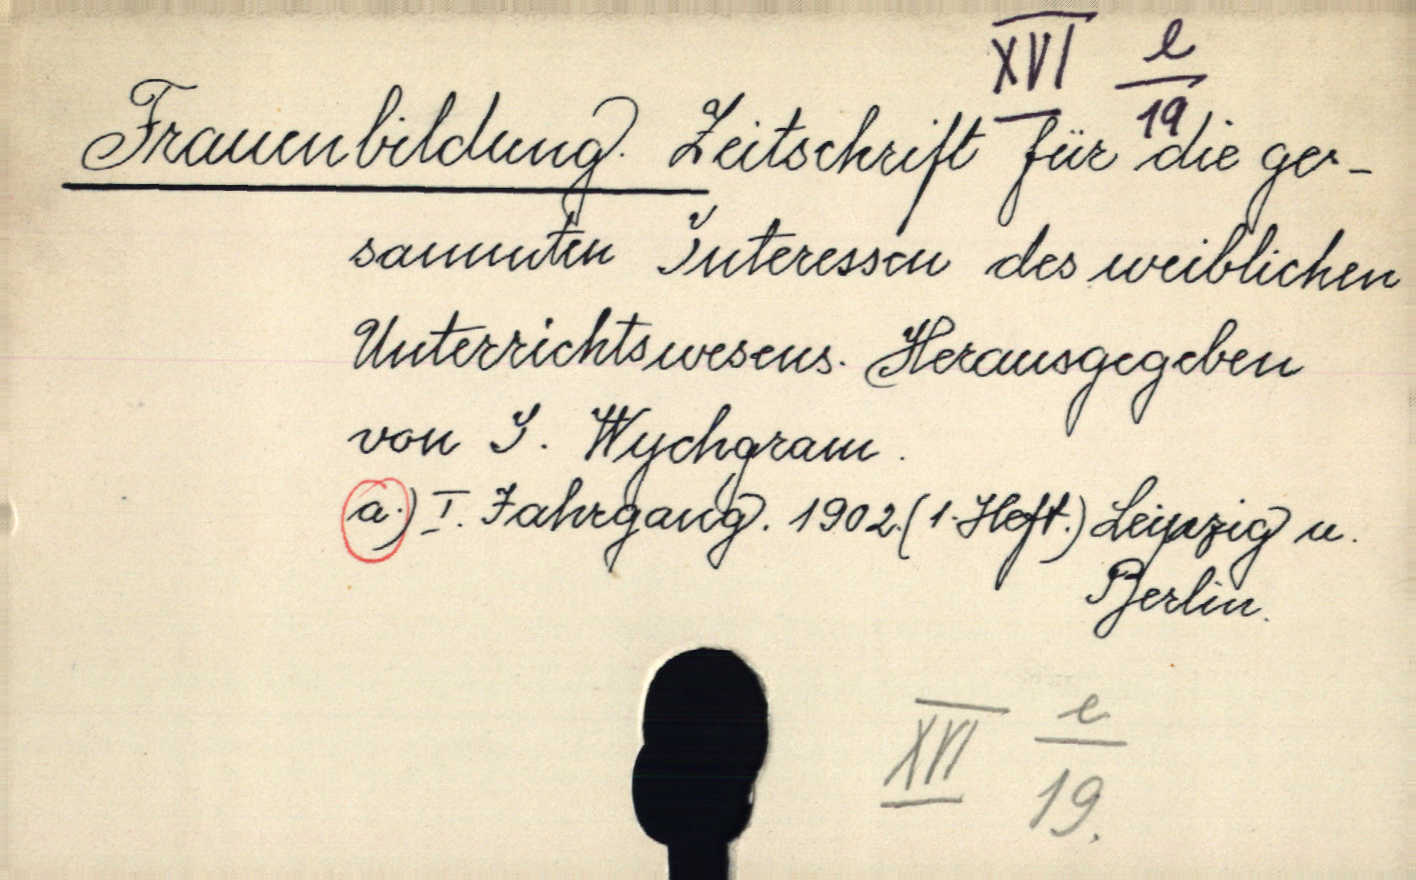 XVI e/19
Frauenbildung. Zeitschrift für die ge-
sammten Interessen des weiblichen
Unterrichtswesens. Herausgegeben
von J. Wychgram.
a.) I. Jahrgang. 1902. (1. Heft.) Leipzig u.
Berlin.
XVI e/19.